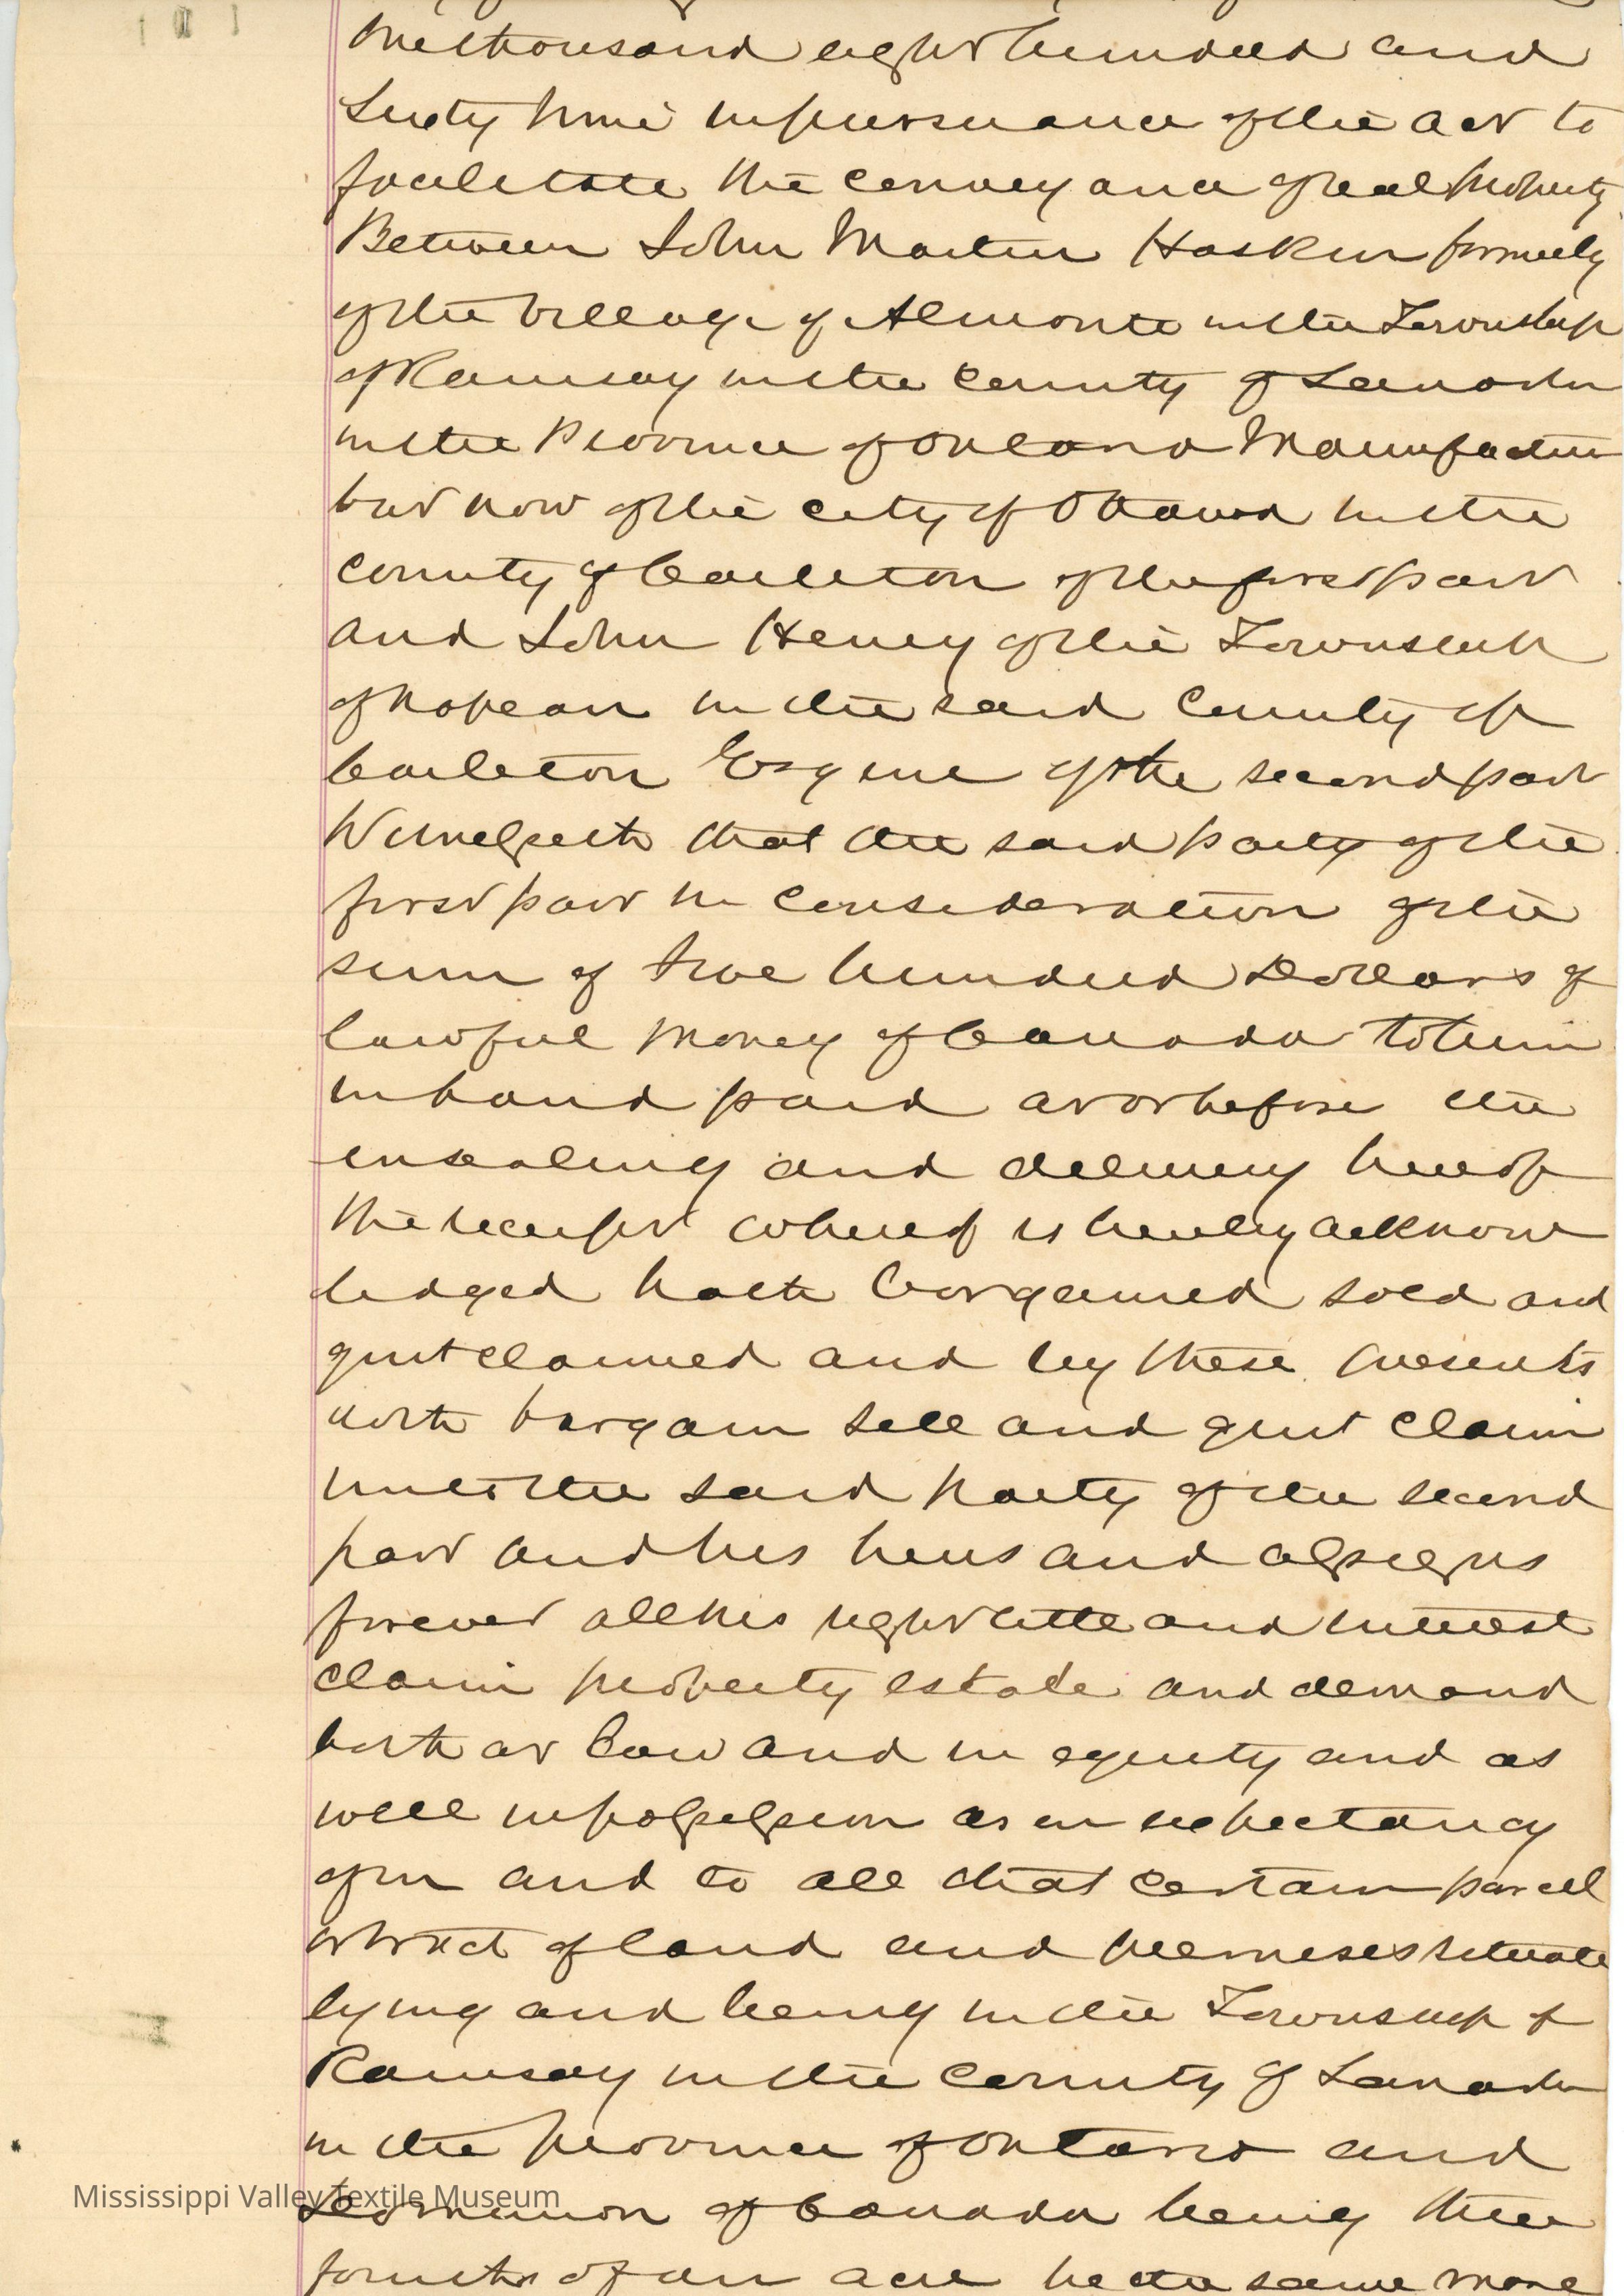 one thousand eight hundred and
Sixty Nine in pursuance of the act to
facilitate the conveyance of real property
Between John Martin Haskin formerly
of the Village of Almonte in the Township
of Ramsay in the County of Lanark
in the Province of Ontario Manufacturer
but now of the city of Ottawa in the
County of Carleton of the first part
and John Henry of the Township
of Nepean in the said County of
Carleton Esquire of the second part
Witnesseth that the said party of the
first part in consideration of the
sum of two hundred Dollars of
lawful money of Canada to him
in hand paid at or before the
ensealing and delivery hereof
the receipt whereof is hereby acknow
ledged hath bargained sold and
quit claimed and by these presents
doth bargain sell and quit claim
unto the said party of the second
part and his heirs and assigns
forever all his right title and interest
claim property estate and demand
both at law and in equity and as
well in possession as in expectancy
of in and to all that certain parcel
or tract of land and premises situate
lying and being in the Township of
Ramsay in the County of Lanark
in the province of Ontario and
Dominion of Canada being three
fourths of an acre be the same more
Mississippi Valley Textile Museum